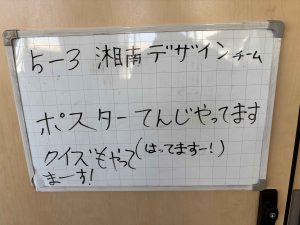 5-3 湘南デザインチーム
ポスターてんじやってます
クイズもやって(はってますー!)
まーす!